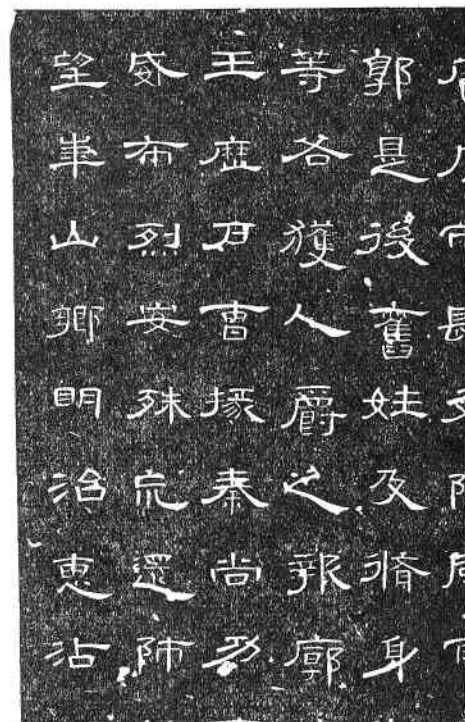 郭是後舊姓及脩身
等各獲人爵之報廓
王歷戶曹掾秦尚功
威布烈安殊荒還師
望華山鄉明治惠沾